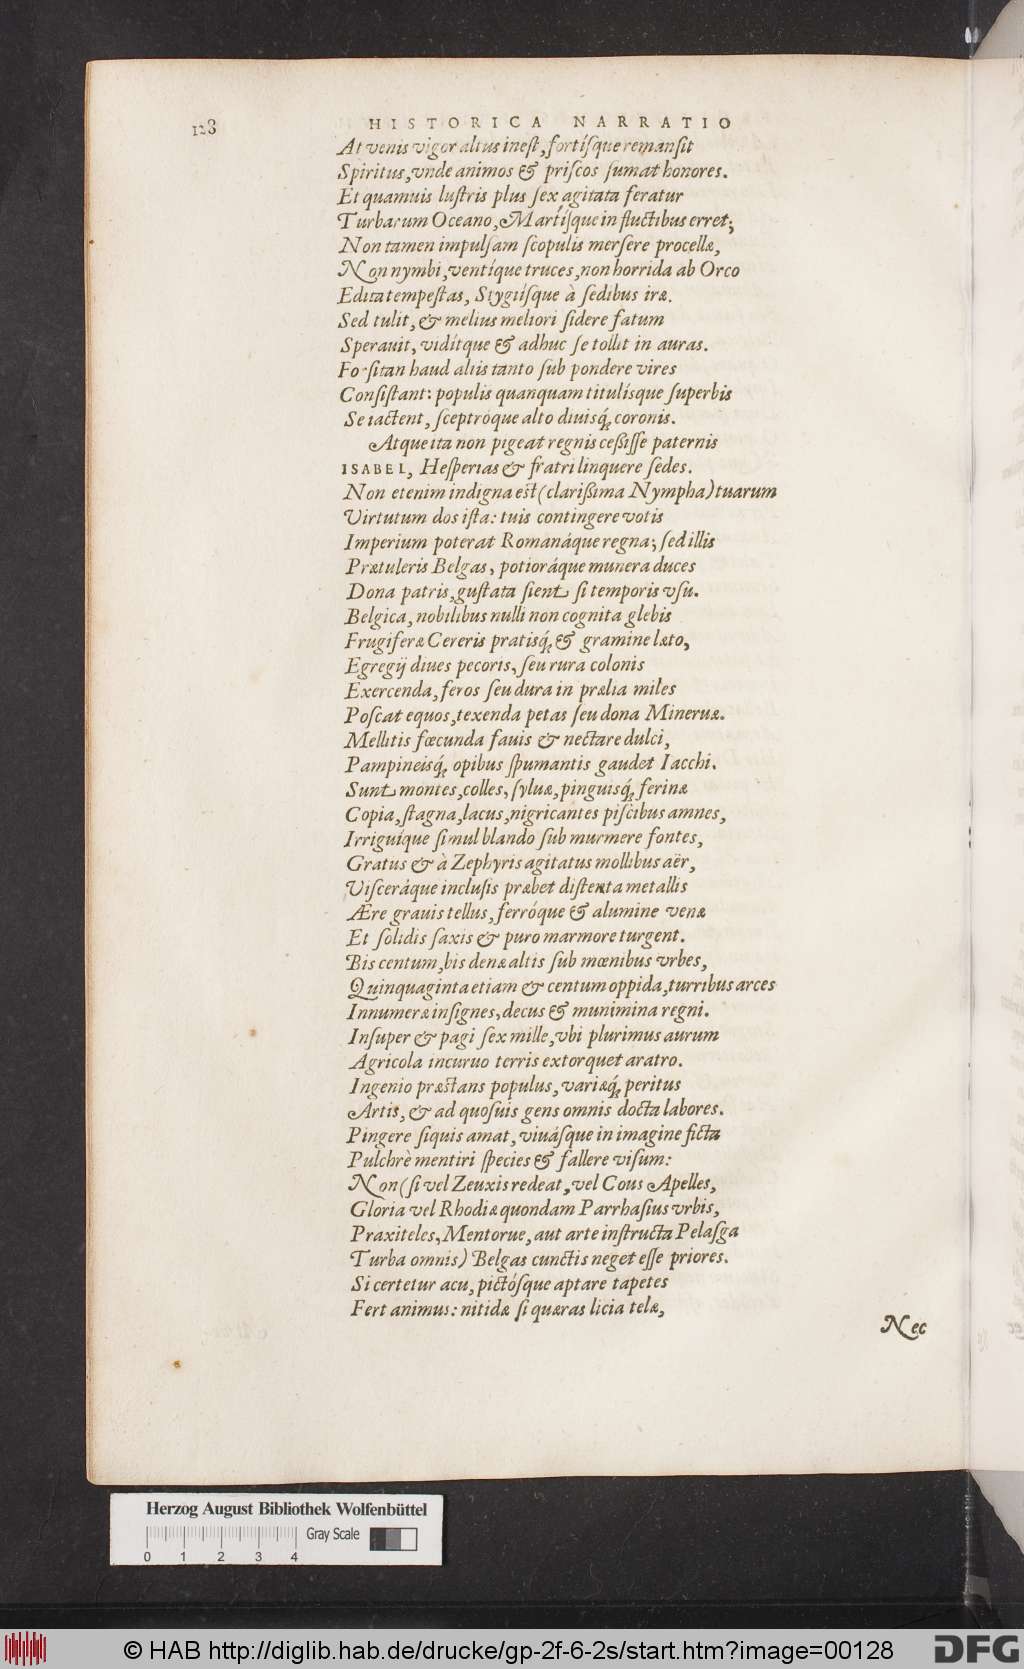 128 HISTORICA NARRATIO
At venis vigor altus inest, fortíſque remanſit
Spiritus, vnde animos & priſcos ſumat honores.
Et quamuis luſtris plus ſex agitata feratur
Turbarum Oceano, Martíſque in fluctibus erret;
Non tamen impulſam ſcopulis merſere procellæ,
Non nymbi, ventíque truces, non horrida ab Orco
Edita tempeſtas, Stygiíſque à ſedibus iræ.
Sed tulit, & melius meliori ſidere fatum
Sperauit, vidítque & adhuc ſe tollit in auras.
Forſitan haud aliis tanto ſub pondere vires
Conſiſtant: populis quanquam titulíſque ſuperbis
Se iactent, ſceptróque alto diuisq́; coronis.
Atque ita non pigeat regnis ceßiſſe paternis
ISABEL, Heſperias & fratri linquere ſedes.
Non etenim indigna est (clarißima Nympha) tuarum
Virtutum dos iſta: tuis contingere votis
Imperium poterat Romanáque regna; ſed illis
Prætuleris Belgas, potioráque munera duces
Dona patris, guſtata ſient ſi temporis vſu.
Belgica, nobilibus nulli non cognita glebis
Frugiferæ Cereris pratisq́; & gramine læto,
Egregij diues pecoris, ſeu rura colonis
Exercenda, feros ſeu dura in prælia miles
Poſcat equos, texenda petas ſeu dona Mineruæ.
Mellitis fœcunda fauis & nectare dulci,
Pampineisq́; opibus ſpumantis gaudet Iacchi.
Sunt montes, colles, ſyluæ, pinguisq́; ferinæ
Copia, ſtagna, lacus, nigricantes piſcibus amnes,
Irriguíque ſimul blando ſub murmere fontes,
Gratus & à Zephyris agitatus mollibus aër,
Viſceráque incluſis præbet diſtenta metallis
Ære grauis tellus, ferróque & alumine venæ
Et ſolidis ſaxis & puro marmore turgent.
Bis centum, bis denæ altis ſub mœnibus vrbes,
Quinquaginta etiam & centum oppida, turribus arces
Innumeræ inſignes, decus & munimina regni.
Inſuper & pagi ſex mille, vbi plurimus aurum
Agricola incuruo terris extorquet aratro.
Ingenio præſtans populus, variæq́; peritus
Artis, & ad quoſuis gens omnis docta labores.
Pingere ſiquis amat, viuáſque in imagine ficta
Pulchrè mentiri ſpecies & fallere viſum:
Non (ſi vel Zeuxis redeat, vel Cous Apelles,
Gloria vel Rhodiæ quondam Parrhaſius vrbis,
Praxiteles, Mentorue, aut arte inſtructa Pelaſga
Turba omnis) Belgas cunctis neget eſſe priores.
Si certetur acu, pictóſque aptare tapetes
Fert animus: nitidæ ſi quæras licia telæ,
Nec
Herzog August Bibliothek Wolfenbüttel
Gray Scale
0 1 2 3 4
© HAB http://diglib.hab.de/drucke/gp-2f-6-2s/start.htm?image=00128
DFG